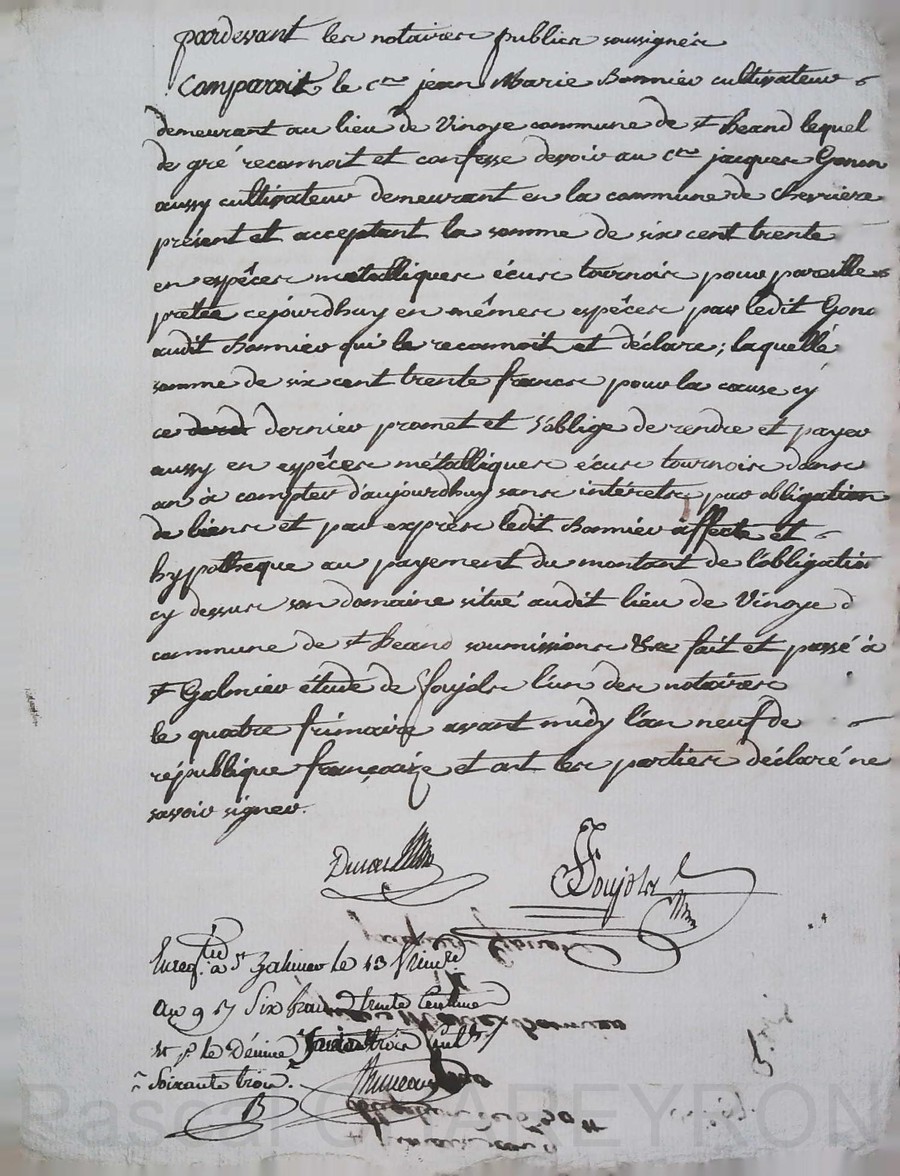 pardevant les notaires publics soussignés
Comparoit le c.en jean Marie Bonnier cultivateur
demeurant au lieu de Vinoye commune de St heand lequel
de gré reconnoit et confesse devoir au c.en jacques Gonon
aussy cultivateur demeurant en la commune de Chevrieres
présent et acceptant la somme de six cent trente
en espêces metalliques écus tournois pour pareille
prêtée cejourdhuy en mêmes espêces par ledit Gono
audit Bonnier qui le reconnoit et déclare; laquelle
somme de six cent trente francs pour la cause cy
ce dernier promet et s'oblige de rendre et payer
aussy en espêces métalliques écus tournois dans
an à compter d'aujourdhuy sans intérets par obligation
de biens et par exprès ledit Bonnier affecte et
hypotheque au payement du montant de l'obligation
cy dessus son domaine situé audit lieu de Vinoye d
commune de St heand soumissions &ra fait et passé à
St Galmier étude de Soujols l'un des notaires
le quatre frimaire avant midy l'an neuf de
république françoize et ont les parties déclaré ne
savoir signer.
Soujols
Enreg.tré à St Galmier le 13 frim.re
an 9 Six francs trente Centimes
et p. le Décime Soixante trois
Soixante trois
Pascal CHAREYRON